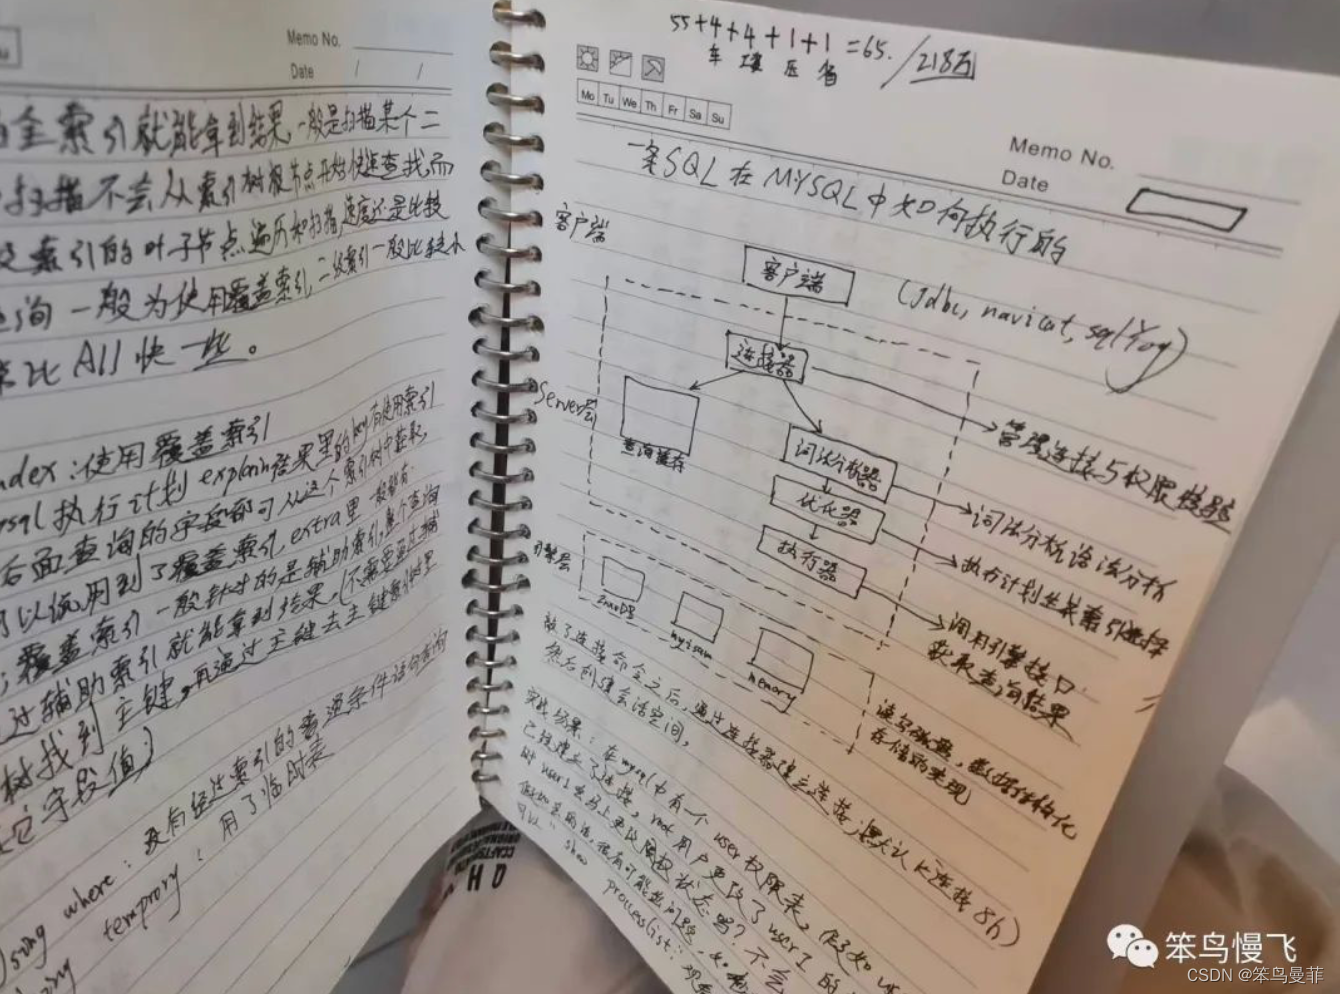 Memo No.
Date / /
全索引就能拿到结果,一般是扫描某个二
扫描不会从索引树根节点开始快速查找,而
索引的叶子节点遍历和扫描,速度还是比较
询一般为使用覆盖索引,二级索引一般比较小
比All快一些。
index:使用覆盖索引
sql执行计划explain结果里的key有使用索引
后面查询的字段都可从这个索引树中获取,
可以说用到了覆盖索引,extra里一般都有
;覆盖索引一般针对的是辅助索引,整个查询
过辅助索引就能拿到结果,(不需要通过辅
树找到主键,再通过主键去主键索引树里
它字段值)
Using where:没有经过索引的 条件语句查询
temprory:用了临时表
55+4+4+1+1=65. /218万
车 压
Mo Tu We Th Fr Sa Su
Memo No.
Date
一条SQL在MYSQL中如何执行的
客户端
客户端
(Jdbc, navicat, sqlYog)
连接器
Server层
查询缓存
管理连接与权限校验
词法分析器
词法分析语法分析
优化器
执行计划生成索引选择
执行器
调用引擎接口
获取查询结果
引擎层
InnoDB
myisam
memory
存储的实现
敲了连接命令之后,通过连接器建立连接,(默认长连接8h)
然后创建会话空间,
实战场景:在mysql中有一个user权限表,假如
已经建立了连接,root用户更改了user1的
user1会马上更改 权状态吗?不会
可以"show
processlist"
笨鸟慢飞
CSDN @笨鸟曼菲